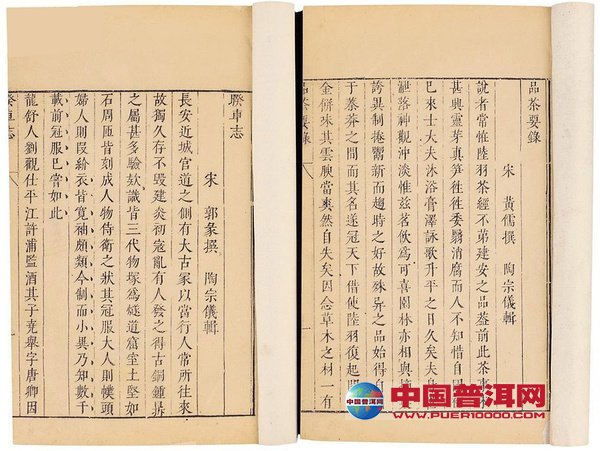 品茶要錄
宋 黃儒撰 陶宗儀輯
說者常惟陸羽茶經不弟建安之品葢前此茶事
甚興靈芽真笋往往委翳消腐而人不知惜自國
巳來士大夫沐浴膏澤詠歌升平之日久矣夫身
落神觀沖淡惟兹茗飲為可喜園林亦相與摘
誇異制捲鬻新而趨時之好故殊异之品始得自
于蓁莽之間而其名遂冠天下借使陸羽復起閱
金餅味其雲腴當爽然自失矣因念草木之材一有
品茶要錄
睽車志
宋 郭彖撰 陶宗儀輯
長安近城官道之側有大古冢以當行人常所往來
故獨久存不毀建炎初寇亂有人發之得古銅鍾鼎
之屬甚多驗款識皆三代物塚為隧道窟室土堅如
石周匝皆刻成人物侍衛之狀其冠服大人則幞頭
婦人則叚紒衣皆寬袖頗類今制而小異乃知數千
載前冠服巳嘗如此
龍舒人劉觀仕平江許浦監酒其子堯舉字唐卿因
睽車志
中国普洱网
WWW.PUER10000.COM